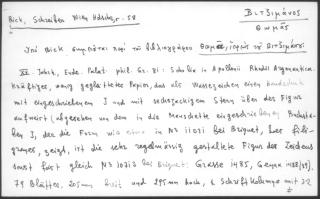 Bick, Schreiber Wien. Hdschr. S. 58
Βιτζιμάνος
Θωμᾶς
Ὑπὸ Bick σημειοῦται περὶ τοῦ βιβλιογράφου Θωμᾶ, ἱερέως τοῦ Βιτζιμάνου:
XV. Jahrh. Ende. Palat. phil. Gr. 81: Scholia in Apollonii Rhodii Argonautica.
kräftiges, wenig geglättetes Papier, das als Wasserzeichen einen Handschuh
mit eingeschriebenem I und mit sechszackigem Stern über der Figur
aufweist (abgesehen von dem in die Manschette eingeschriebenen Buchsta-
ben I, der die Form wie etwa in N3 11071 bei Briquet, der Fili-
granes, zeigt, ist die sehr regelmässig gestaltete Figur des Zeichens
sonst fast gleich N3 10713 bei Briquet: Grasse 1485, Genua 1488/89).
79 Blätter, 205mm breit und 295mm hoch, & Schrift Kolumne mit 32